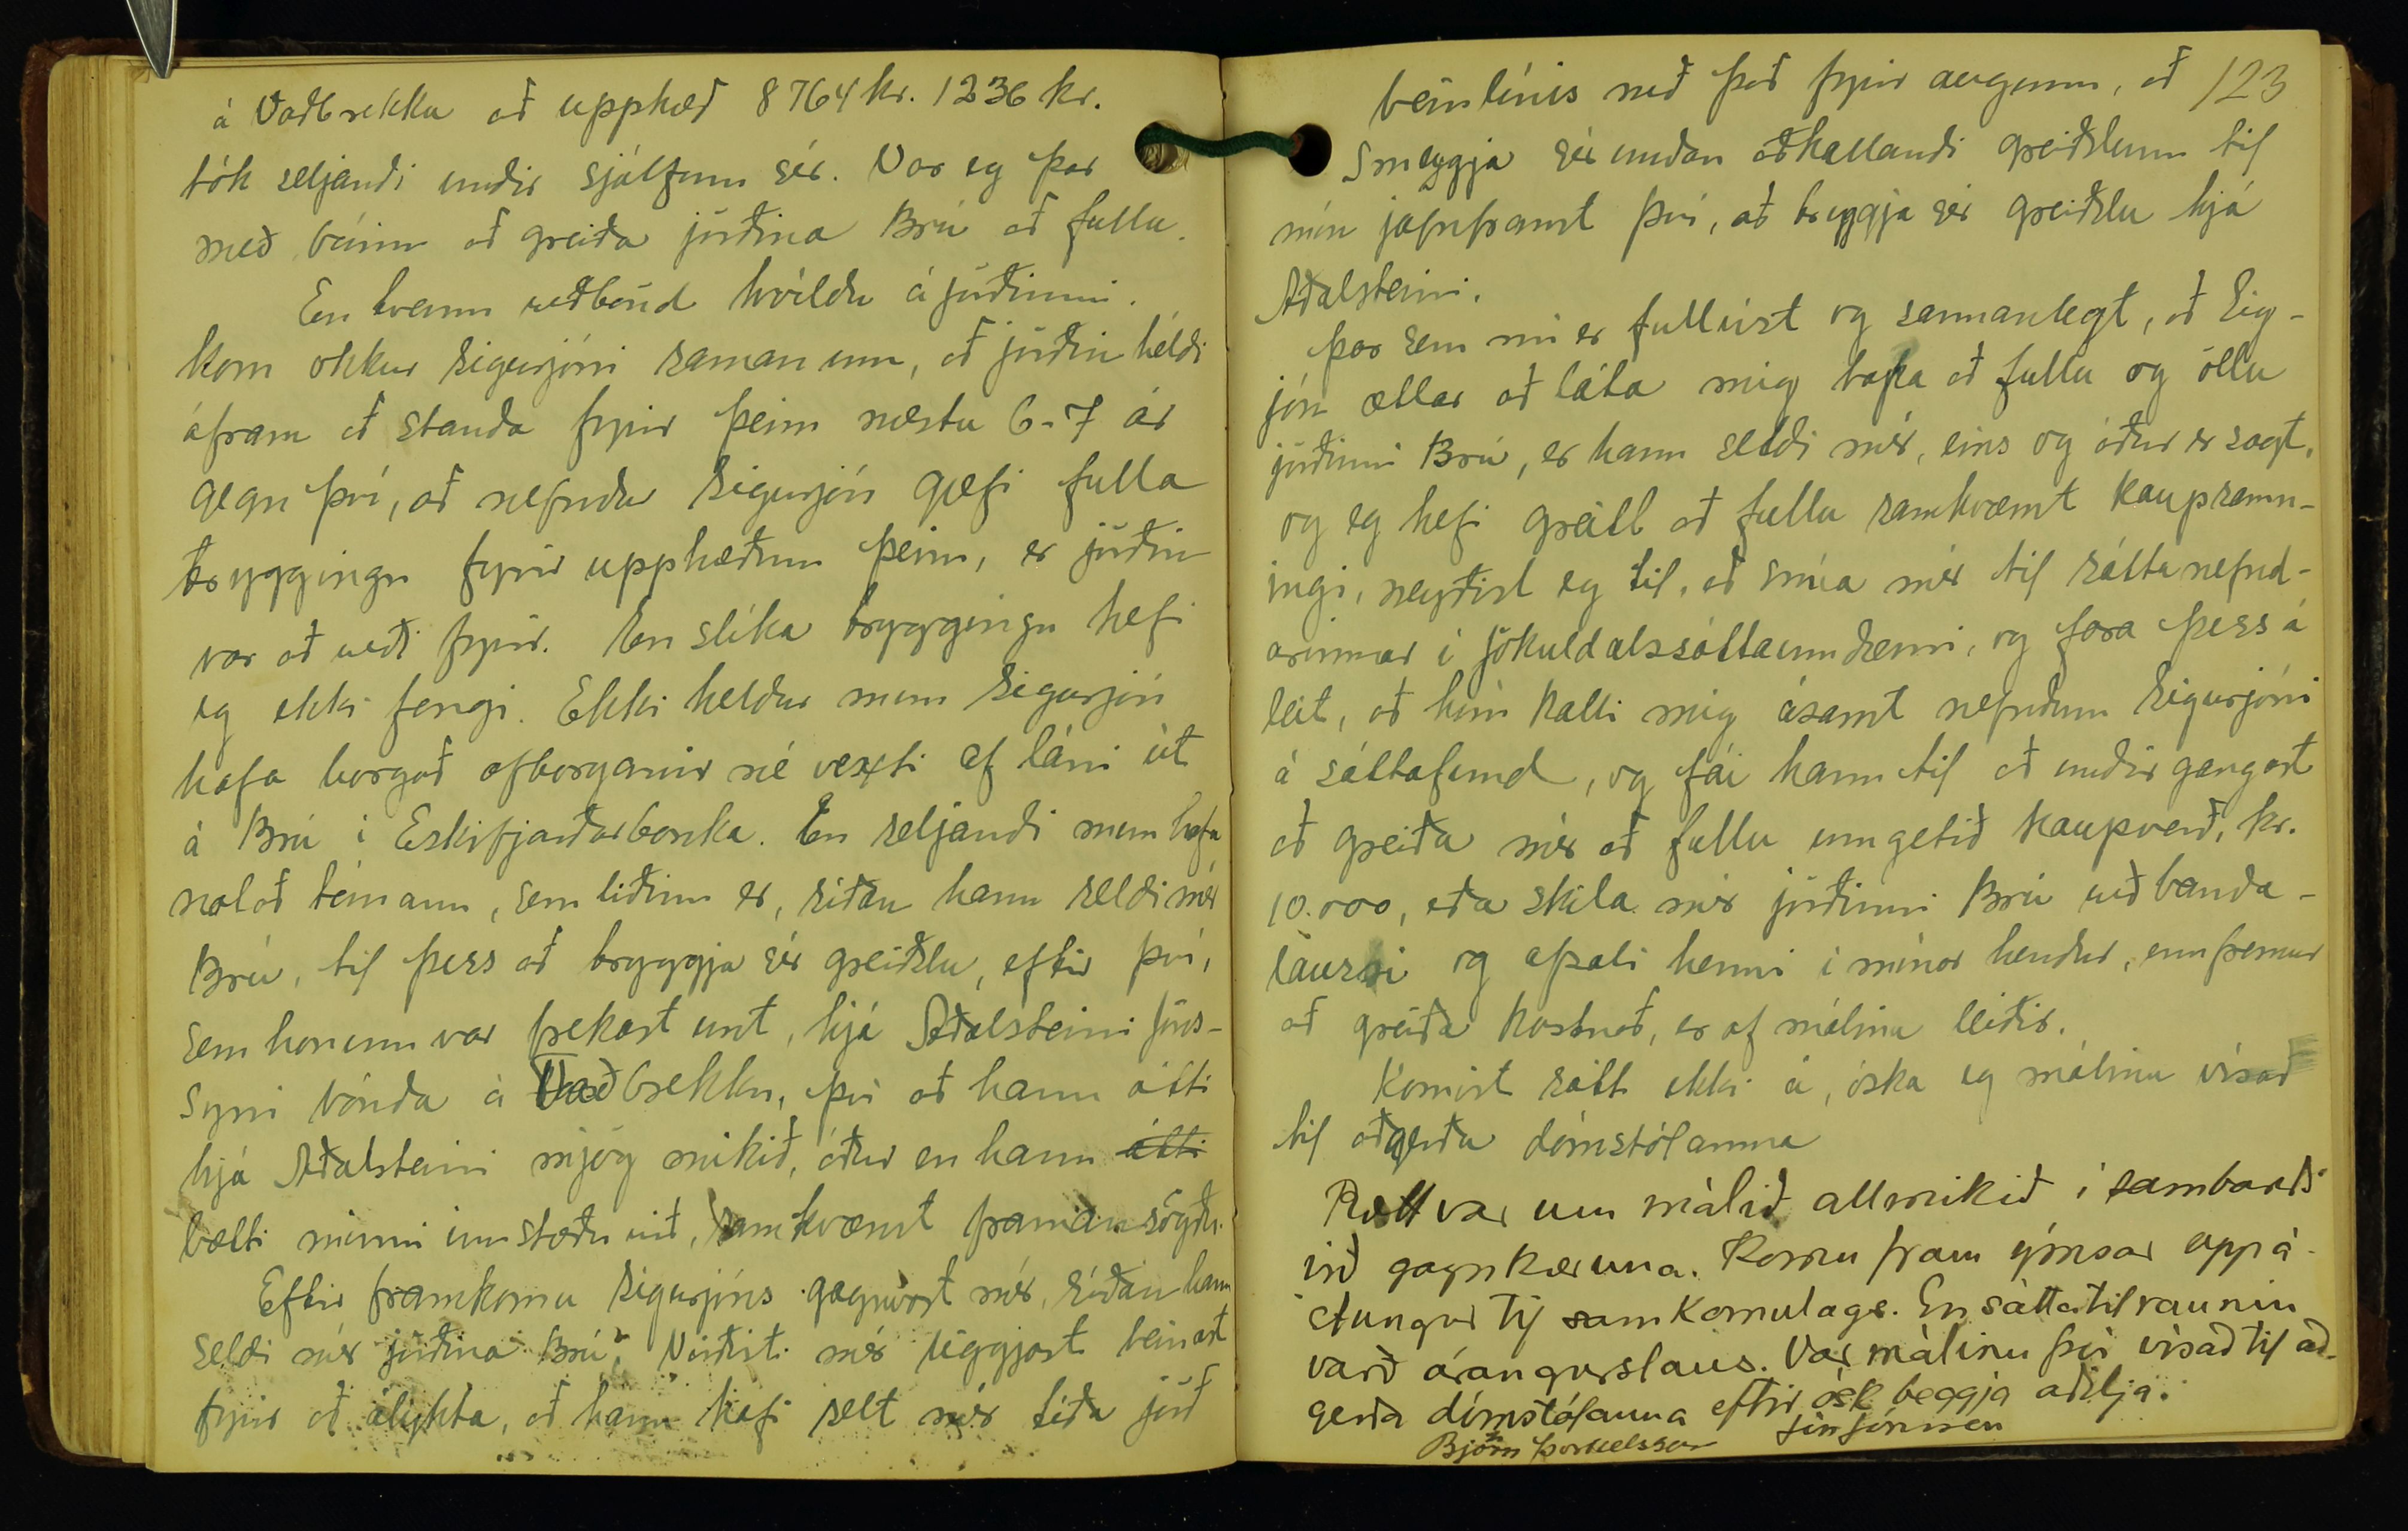 á Vaðbrekku að upphæð 8764 kr. 1236 kr.
tók seljandi undir sjálfum sér. Var eg þar
með búinn að greiða jörðina Brú að fullu.
En tvenn veðbönd hvíldu á jörðinni.
kom okkur Sigurjóni saman um, að jörðin héldi
áfram að standa fyrir þeim næstu 6-7 ár
gegn því, að nefndur Sigurjón gæfi fulla
tryggingu fyrir upphæðum þeim, er jörðin
var að veði fyrir. En slíka tryggingu hefi
eg ekki fengi. Ekki heldur mun Sigurjón
hafa borgað afborganir né vexti af láni út
á Brú í Eskifjarðarbanka. En seljandi mun hafa
notað tímann, sem liðinn er, síðan hann seldi mér
Brú, til þess að tryggja sér greiðslu, eftir því,
sem honum var frekast unt, hjá Aðalsteini Jóns-
syni bónda á Vaðbrekku, því að hann átti
hjá Aðalsteini mjög mikið, áður en hann átti
bætti minni innstæðu við, samkvæmt framansögðu.
Eftir framkomu Sigurjóns gagnvart mér, síðan hann
seldi mér jörðina Brú, virðist mér liggjast beinast
fyrir að álykta, að hann hafi selt mér téða jörð
123
beinlínis með það fyrir augum, að
smeygja sér undan aðkallandi greiðslum til
mín jafnframt því, að tryggja sér greiðslu hjá
Aðalsteini.
Þar sem nú er fullvíst og sannanlegt, að Sig-
jón ætlar að láta mig tapa að fullu og öllu
jörðinni Brú, er hann seldi mér, eins og áður er sagt,
og eg hefi greitt að fullu samkvæmt kaupsamn-
ingi, neyðist eg til, að snúa mér til sáttanefnd-
arinnar í Jökuldalssáttaumdæmi, og fara þess á
leit, að hún kalli mig ásamt nefndum Sigurjóni
á sáttafund, og fái hann til að undirgangast
að greiða mér að fullu umgetið kaupverð, kr.
10.000, eða skila mér jörðinni Brú veðbanda-
laussi og afsali henni í mínar hendur, ennfremur
að greiða kostnað, er af málinu leiðir.
Komist sátt ekki á, óska eg málinu vísað
til aðgerða dómstólanna
Rætt var um málið allmikið í sambandi
við gagnkæruna. Komu fram ýmsar uppá-
stungur til samkomulags. En sáttatilraunin
varð árangurslaus. Var málinu því vísað til að-
gerða dómstólanna eftir ósk beggja aðilja.
Björn Þorkelsson Jón Jónsson